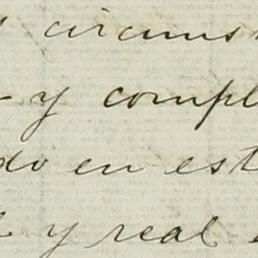 circuns
y compl
do en est
y real